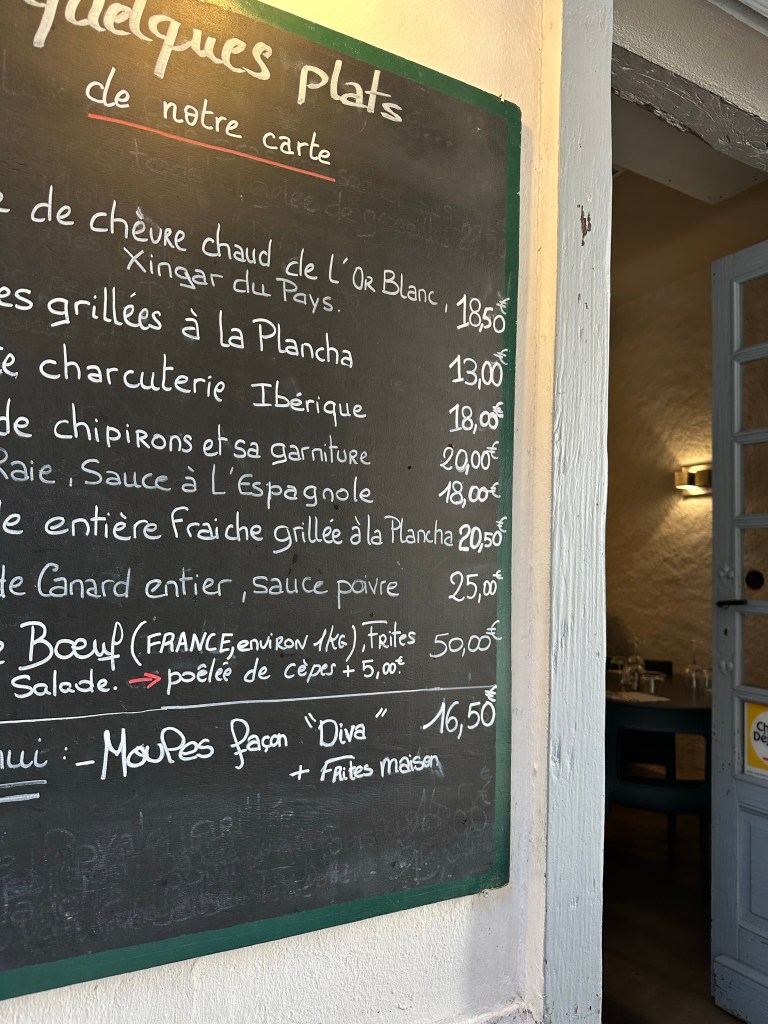 quelques plats
de notre carte
de chèvre chaud de l'Or Blanc, 18,50€
Xingar du Pays.
es grillées à la Plancha 13,00€
charcuterie Ibérique 18,00€
de chipirons et sa garniture 20,00€
Raie, Sauce à L'Espagnole 18,00€
le entière Fraiche grillée à la Plancha 20,50€
de Canard entier, sauce poivre 25,00€
Bœuf (FRANCE, environ 1KG), Frites 50,00€
Salade. → poêlée de cèpes + 5,00€
hui : - Moules façon "Diva" 16,50€
+ Frites maison